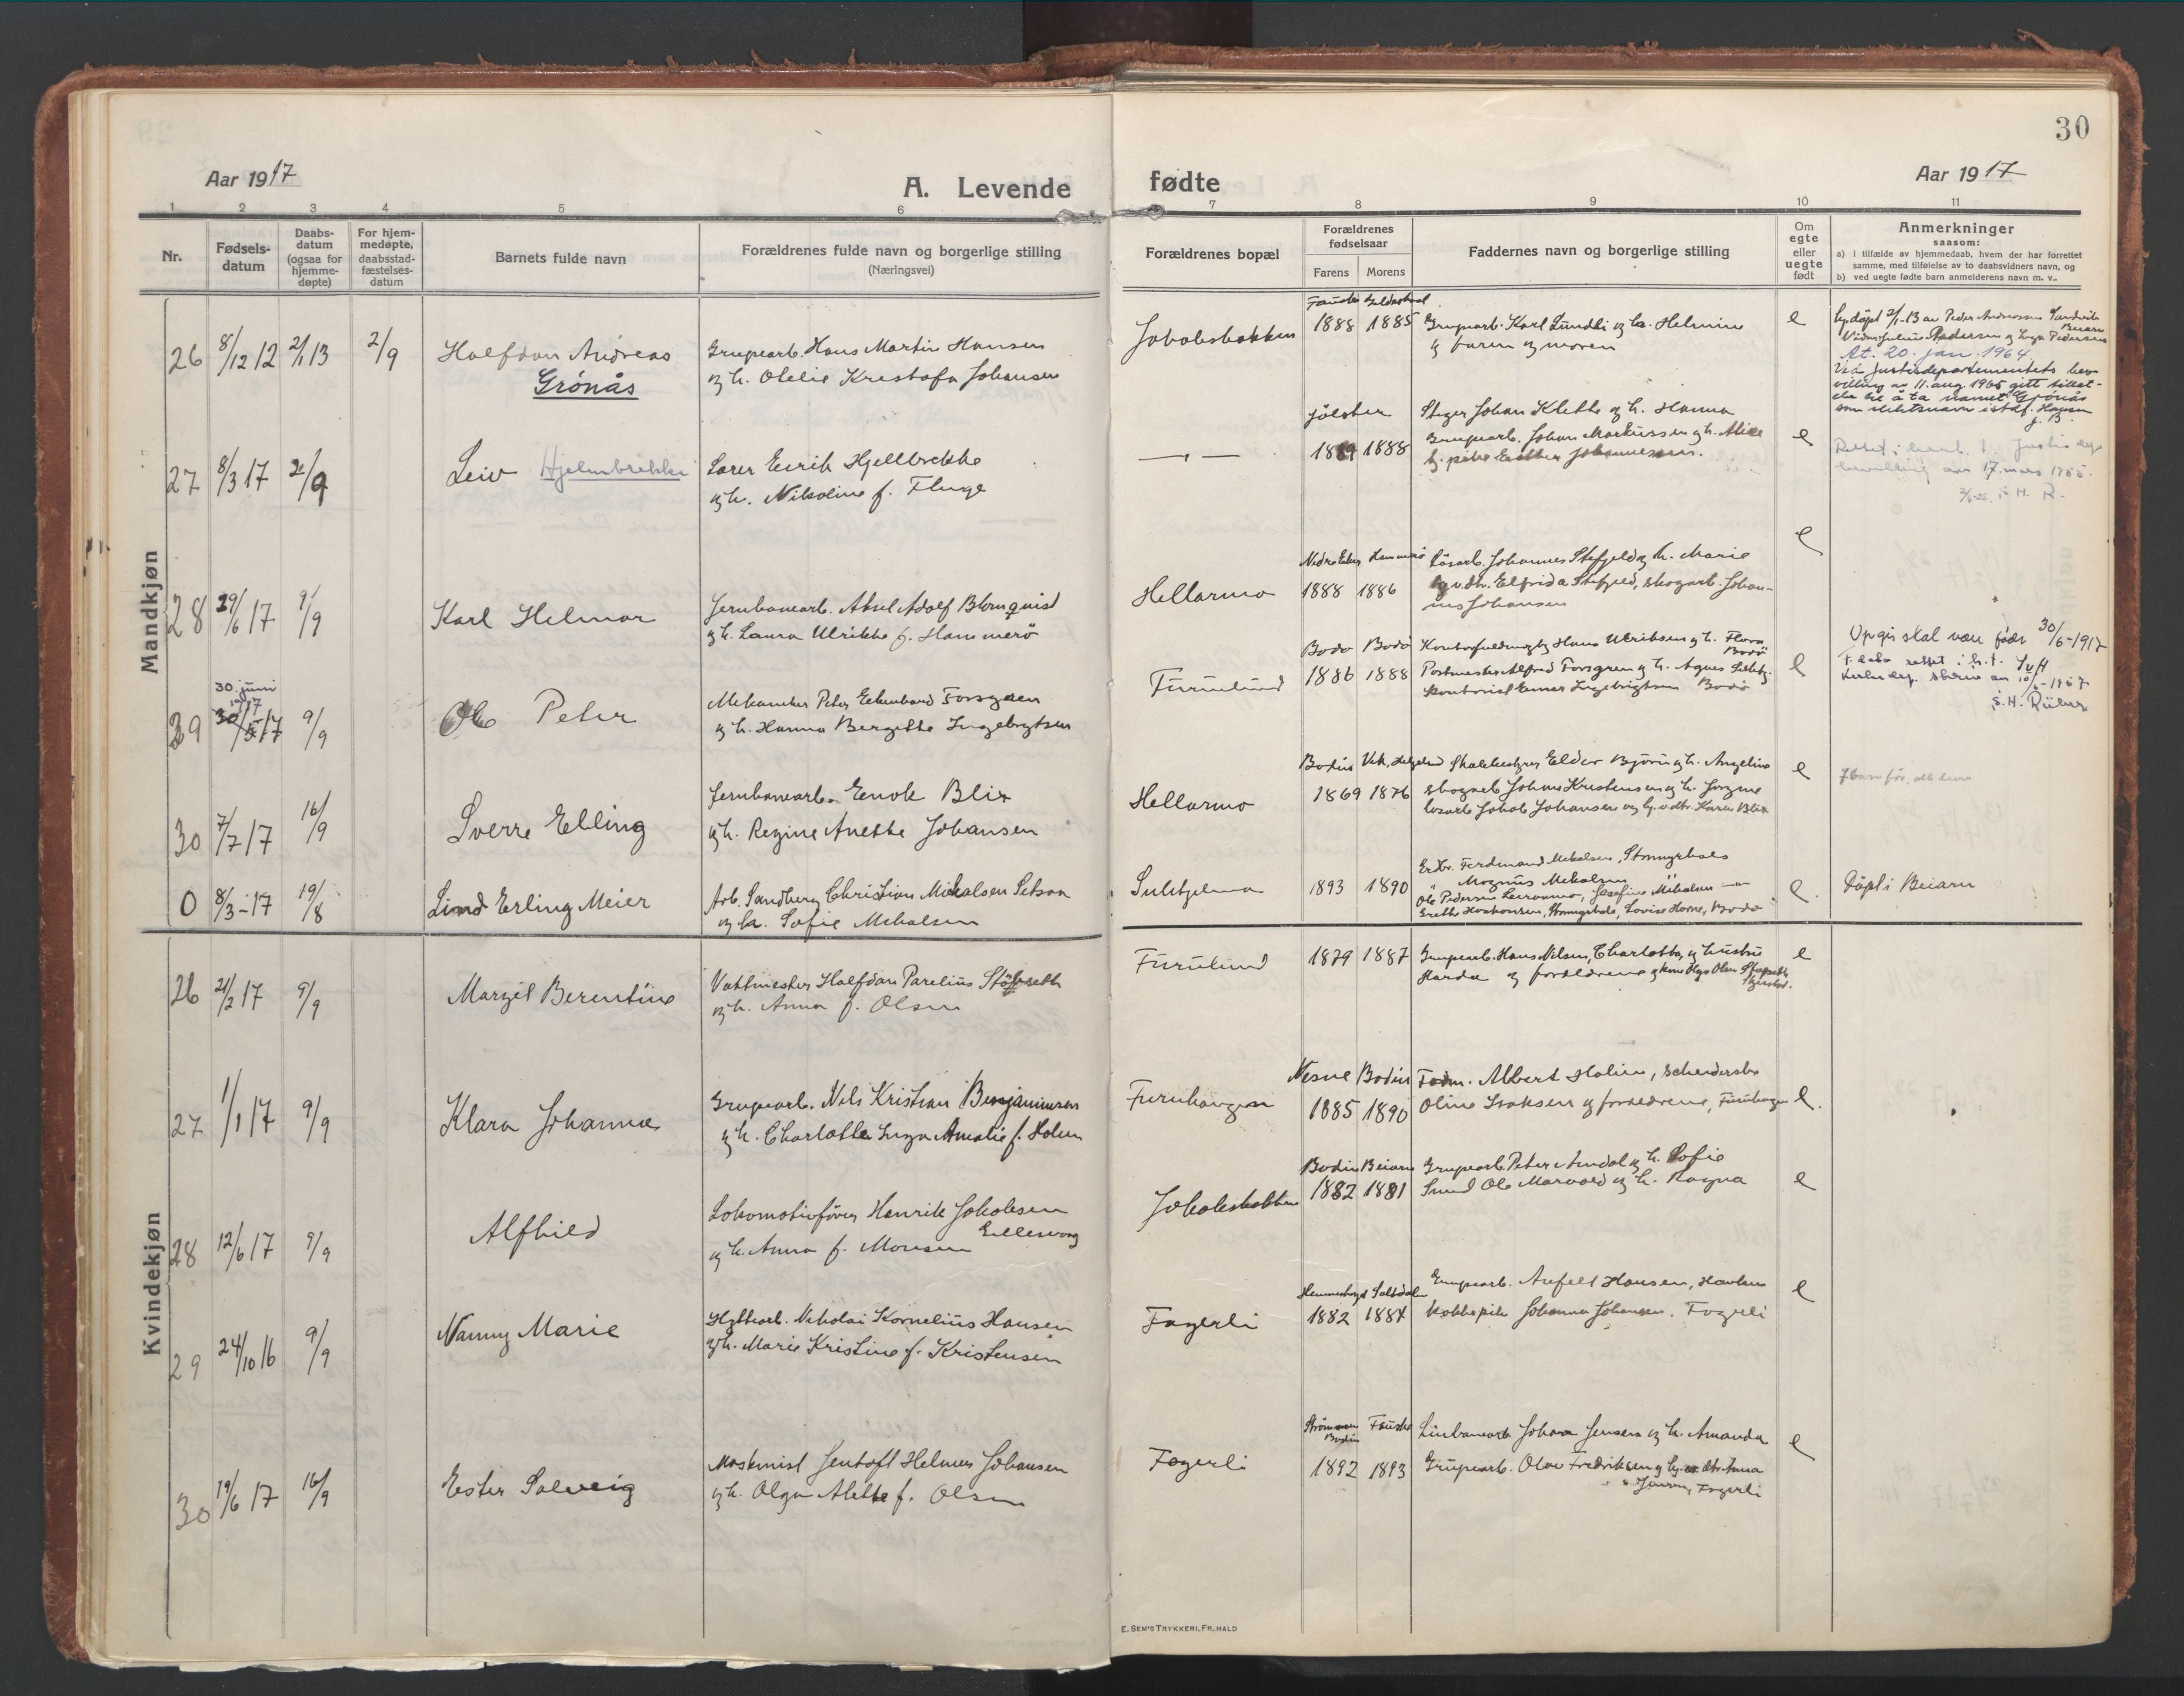 30
Aar 1917
A. Levende
fødte
Aar 1917
1 2 3 4 5 6 7 8 9 10 11
Nr.
Fødsels-
datum
Daabs-
datum
(ogsaa for
hjemme-
døpte)
For hjem-
medøpte,
daabsstad-
fæstelses-
datum
Barnets fulde navn
Forældrenes fulde navn og borgerlige stilling
(Næringsvei)
Forældrenes bopæl
Forældrenes
fødselsaar
Farens Morens
Faddernes navn og borgerlige stilling
Om
egte
eller
uegte
født
Anmerkninger
saasom:
a) i tilfælde av hjemmedaab, hvem der har forrettet
samme, med tilføielse av to daabsvidners navn, og
b) ved uegte fødte barn anmelderens navn m. v..
Mandkjøn
26 8/12 12 2/1 13 2/9 Halfdan Andreas
Grönås
Grupearb. Hans Martin Hansen
og h. Otelie Kristofa Johansen
Jakobsbakken
1888 1885
Grupearb. Karl Lundli og h. Helmine
og faren og moren
e
Hj.døpt 2/1-13 av Peder Andreassen Sandvik
Beiarn
At. 20. jan. 1964
Ved Justisdepartementets bev-
villing av 11. aug. 1965 gitt tillat-
else til å ta navnet Grönås
som slektsnavn istdf. Hansen
27 8/3 17 2/9 Leiv Hjelmbrekke
Lærer Eirik Hjellbrekke
og h. Nikoline f. Fluge
— „ —
Jølster
1889 1888
Steger Johan Klette og h. Hanna
Grupearb. Johan Markussen og h. Alice
hj. pike Esther Johannessen.
e
17. mars 1955
28 29/6 17 9/9 Karl Helmar
Jernbanearb. Aksel Adolf Blomquist
og h. Laura Ulrikke f. Hammerö
Hellarmo
1888 1886
Løsarb. Johannes Stefjeld og h. Marie
hj.v.dtr. Elfrida Stefjeld, skogarb. Johan-
nes Johansen
e
39 30. juni 1917 30/5 17 9/9 Ole Peter
Mekaniker Peter Eckenhard Forsgren
og h. Hanna Bergitte Ingebrigtsen
Furulund
Bodø Bodø
1886 1888
Kontorfuldmægtig Hans Ulriksen og h. Flora
Bodø
Postmester Alfred Forsgren og h. Agnes
kontorist Einar Ingebrigtsen Bodø
e
Opgis skal være født 30/6-1917
30 7/7 17 16/9 Sverre Elling
Jernbanearb. Enok Blix
og h. Regine Anette Johansen
Hellarmo
1869 1876
Skolebestyrer Eldor Bjørn og h. Angelina
skogarb. Johan Kristensen og h. Jorgine
løsarb. Jakob Johansen og hj.v.dtr. Karen Blix
e
7 barn før, alle lever
0 8/3-17 19/8 Lind Erling Meier
Arb. Sandberg Christian Mikalsen Setsaa
og h. Sofie Mikalsen
Sulitjelma
1893 1890
Erdbr. Ferdinand Mikalsen, Stormyrhals
" Magnus Mikalsen "
Ole Pedersen Leiramo, Josefine Mikalsen —"—
Grethe Haakonsen, Stormyrhals, Lovise Horne, Bodø
e.
Døpt i Beiarn
Kvindekjøn
26 21/2 17 9/9 Margit Berentine
Vaktmester Halfdan Parelius Støpseth
og h. Anna f. Olsen
Furulund
1879 1887
Grupearb. Hans Nilsen, Charlotta og hustru
Harda og forældrene
e
27 1/1 17 9/9 Klara Johanna
Grupearb. Nils Kristian Benjaminsen
og h. Charlotte Inga Amalie f. Holm
Furuhaugen
Nesne Bodin
1885 1890
Form. Albert Holm,
Oline Isaksen og forældrene, Furuhaugen
e.
28 12/6 17 9/9 Alfhild
Lokomotivfører Henrik Jakobsen
Ellesvang
og h. Anna f. Monsen
Jakobsbakken
Bodin Beiarn
1882 1881
Grupearb. Peter Amdal og h. Sofie
Smed Ole Marvold og h. Ragna
e
29 24/10 16 9/9 Nanny Marie
Hyttearb. Nikolai Kornelius Hansen
og h. Marie Kristine f. Kristensen
Fagerli
Hemnesberget Saltdalen
1882 1884
Grupearb. Anfelt Hansen,
Kokkepike Johanna Johansen. Fagerli
e
30 19/6 17 16/9 Ester Solveig
Maskinist Jentoft Helmer Johansen
og h. Olga Alette f. Olsen
Fagerli
Strømmen Fauske
Bodin
1892 1893
Linbanearb. Johan Jensen og h. Amanda
Grupearb. Olav Fredriksen og hj.v.dtr. Anna
Jensen, Fagerli
e
E. SEM'S TRYKKERI, FR.HALD